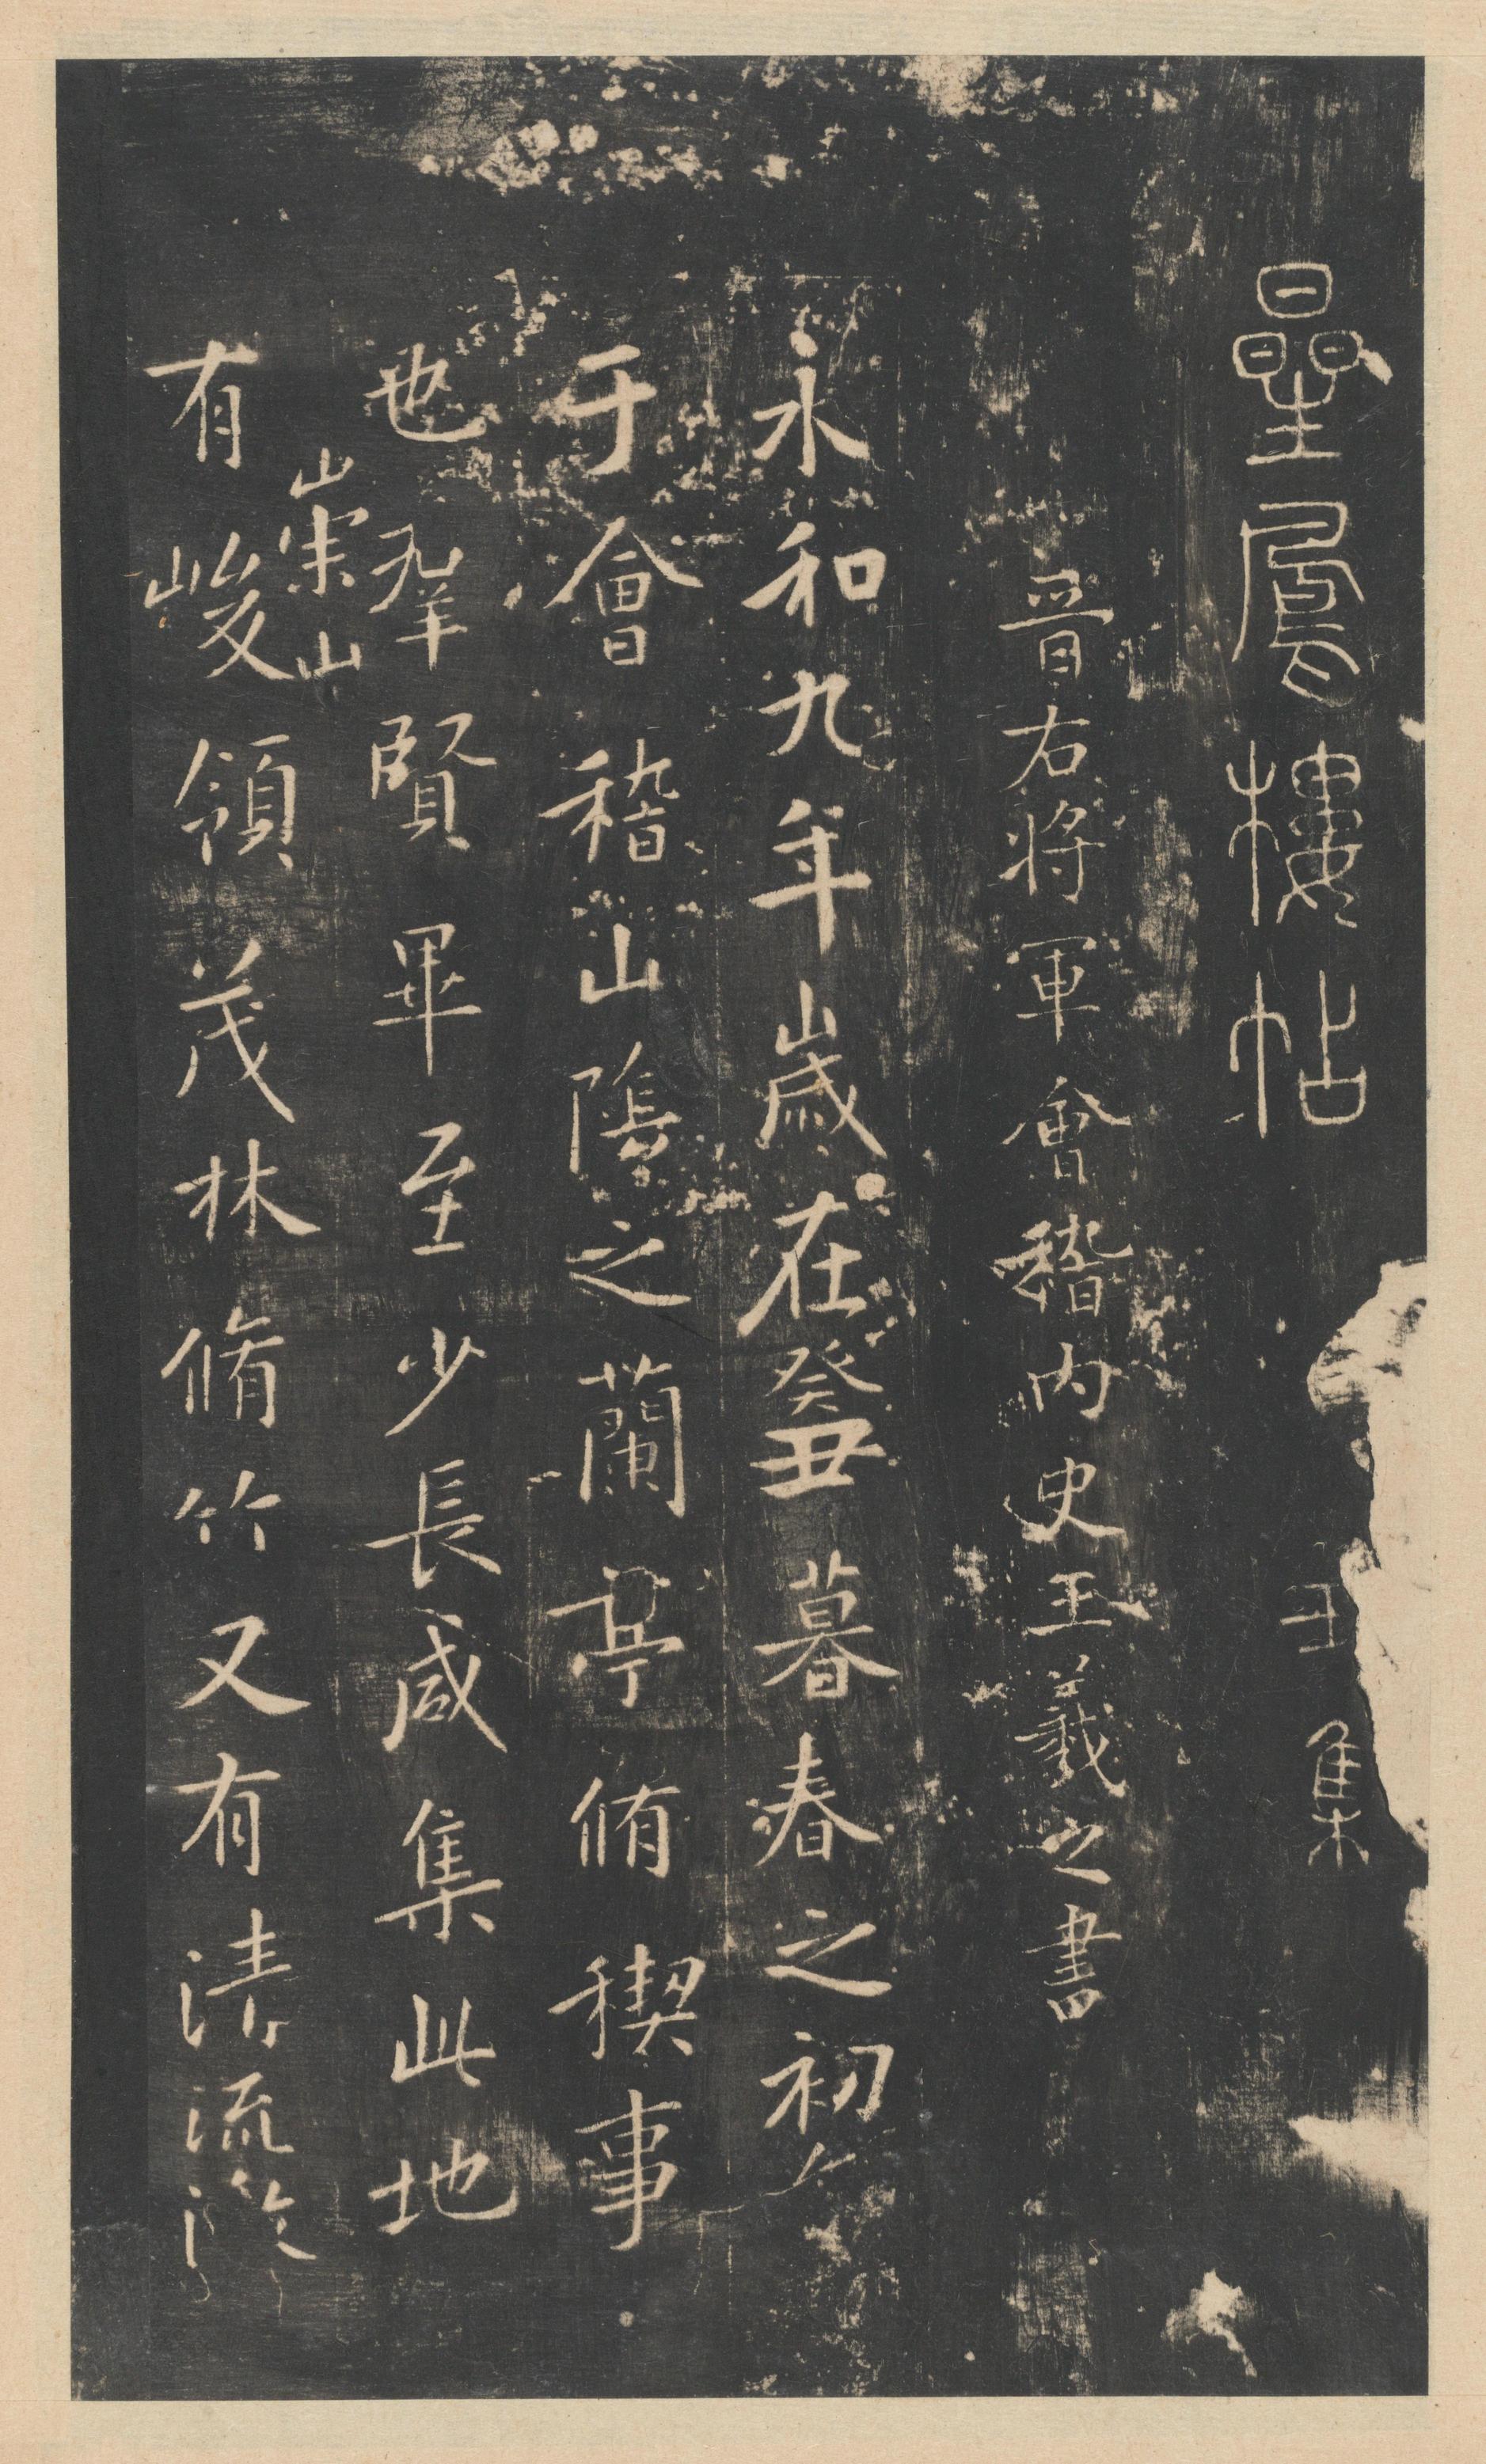 星鳳樓帖 丑集
晉右將軍會稽內史王羲之書
永和九年歲在癸丑暮春之初
于會稽山陰之蘭亭脩稧事
也羣賢畢至少長咸集此地
崇山
有峻領茂林脩竹又有清流